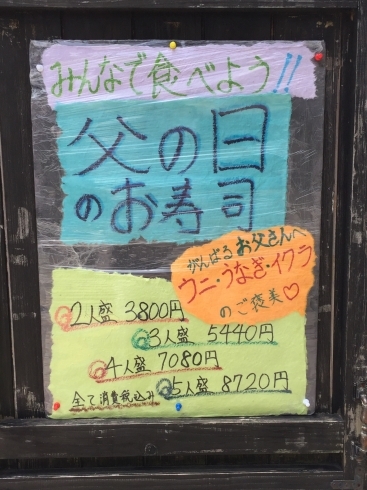 みんなで食べよう!!
父の日
のお寿司
がんばるお父さんへ
ウニ・うなぎ・イクラ
のご褒美♡
2人盛 3800円
3人盛 5440円
4人盛 7080円
5人盛 8720円
全て消費税込み